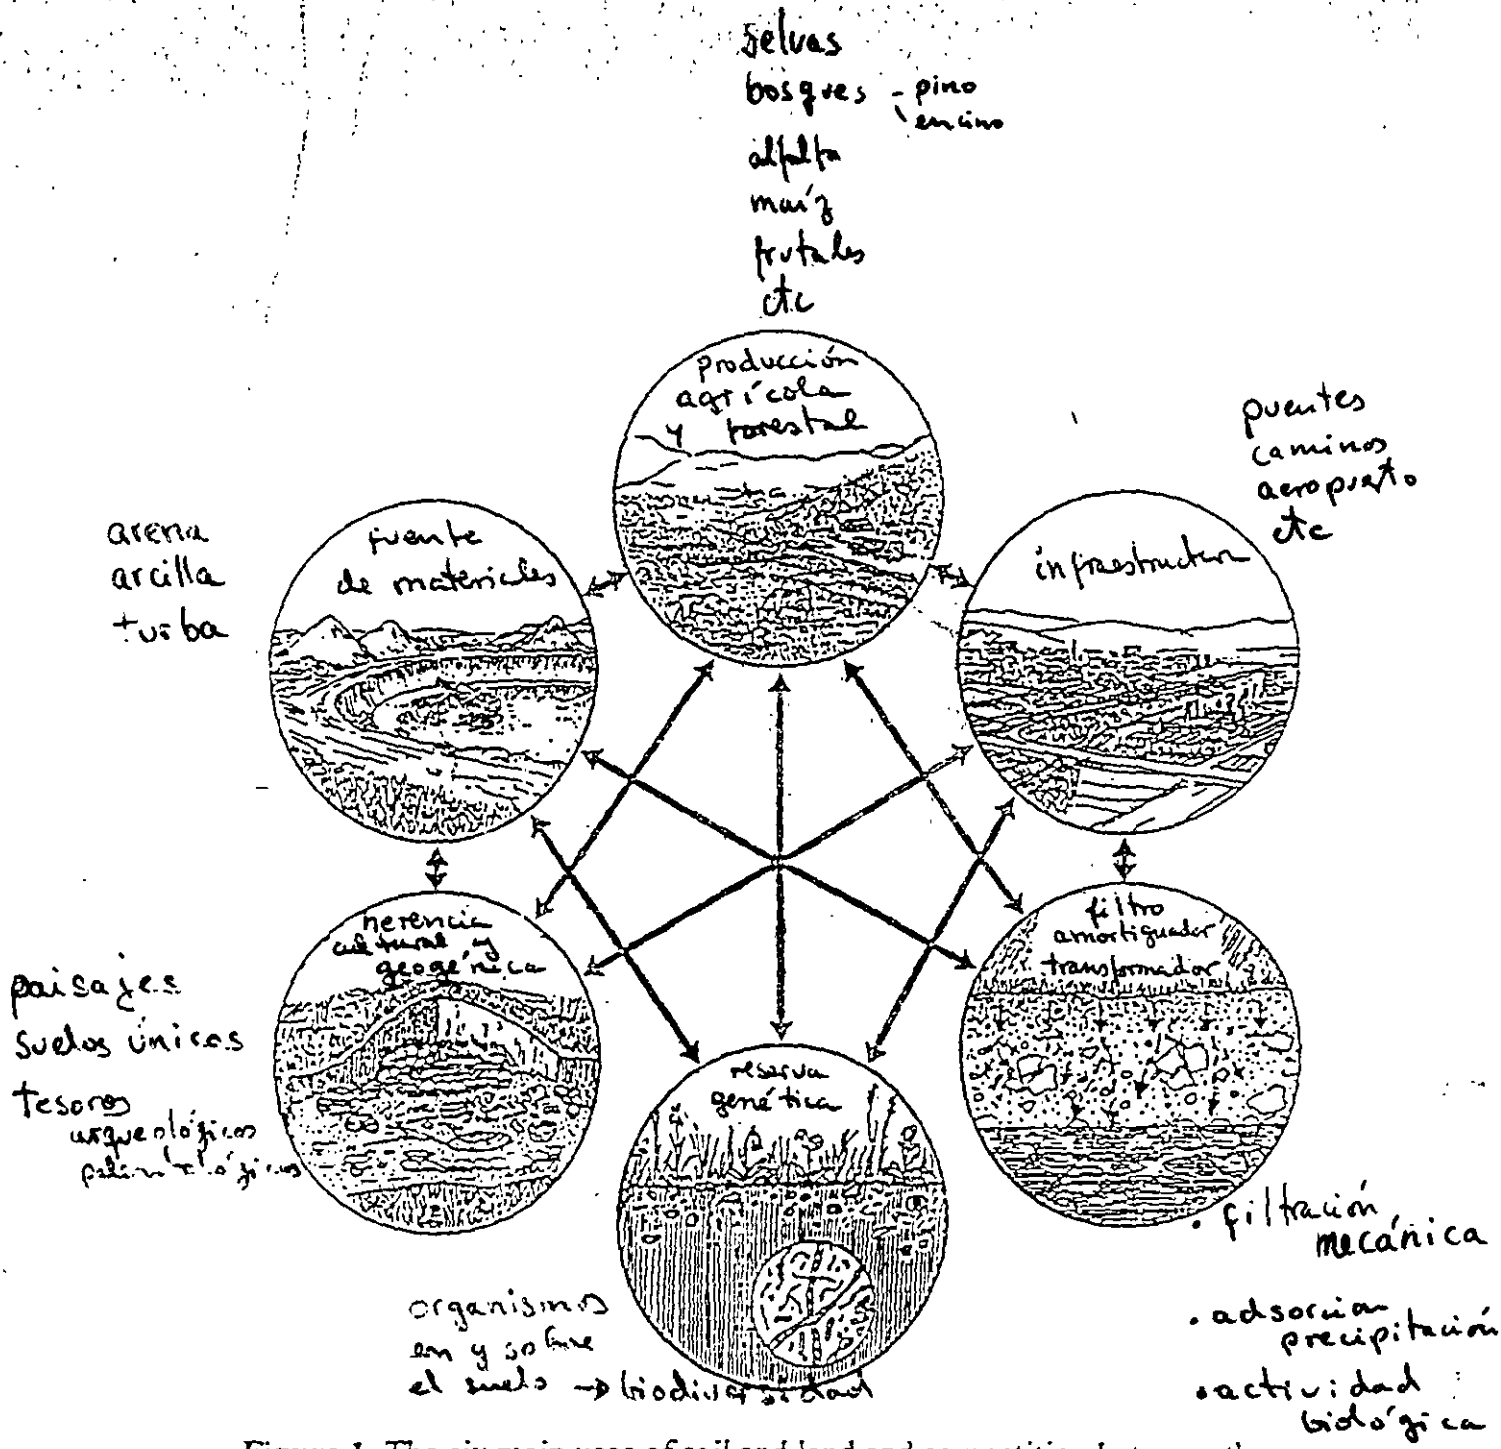 selvas
bosques - pino
encino
alfalfa
maíz
frutales
etc
producción
agrícola
y forestal
puentes
caminos
aeropuerto
etc
infraestructura
arena
arcilla
turba
fuente
de materiales
herencia
cultural y
geogénica
paisajes
suelos únicos
tesoros
arqueológicos
filtro
amortiguador
transformador
reserva
genética
organismos
en y sobre
el suelo → biodiversidad
• filtración
mecánica
• adsorción
precipitación
• actividad
biológica
Figure 1. The six main uses of soil and land and competition between them